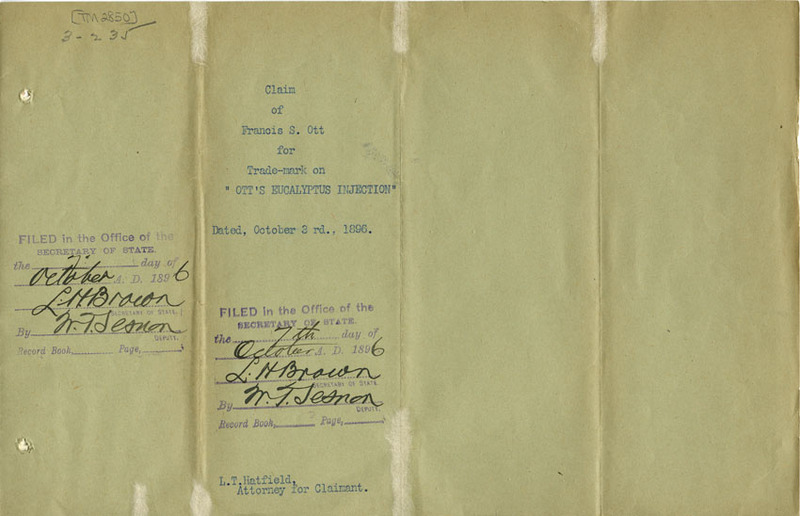 [TM 2850]
3-235
FILED in the Office of the
SECRETARY OF STATE.
the 7th day of
October A. D. 1896
L. H. Brown
SECRETARY OF STATE.
By W. T. Sesnon
DEPUTY.
Record Book, Page,
Claim
of
Francis S. Ott
for
Trade-mark on
" OTT'S EUCALYPTUS INJECTION"
Dated, October 3 rd., 1896.
FILED in the Office of the
SECRETARY OF STATE.
the 7th day of
October A. D. 1896
L. H. Brown
SECRETARY OF STATE.
By W. T. Sesnon
DEPUTY.
Record Book, Page,
L.T.Hatfield,
Attorney for Claimant.